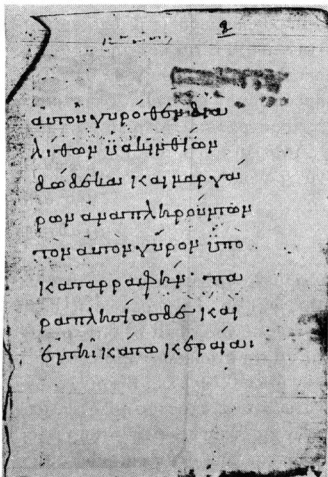 2
αυτοῦ γυρόθεν δια
λίθων ϋακινθίων
δώδεκα καὶ μαργά
ρων ἀναπληρούντων
τὸν αυτὸν γύρον ϋπο
καταρραφὴν· πα
ραπλησίως δὲ καὶ
ἐν τῆι κάτω κεραίαι